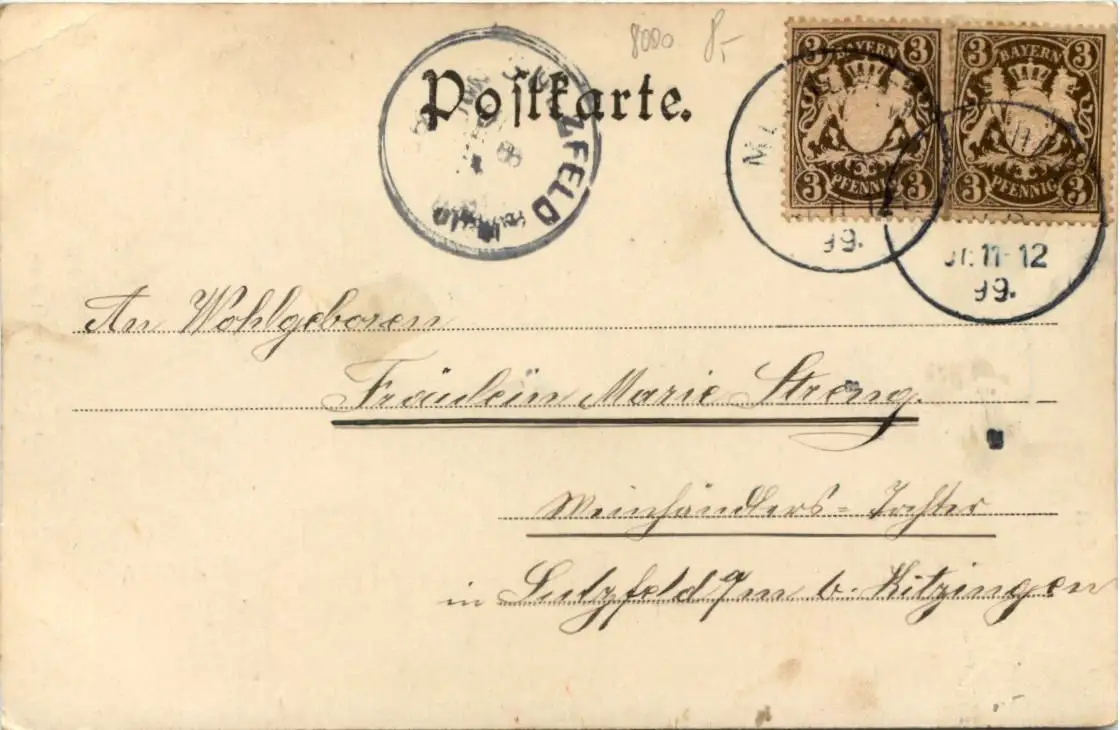 8000 8,-
Postkarte.
ZFELD
3 BAYERN 3
3 PFENNIG 3
3 BAYERN 3
3 PFENNIG 3
99.
11-12
99.
An Wohlgeboren
Fräulein Marie Streng.
Weinhändlers=Tochter
in Sulzfeld a/m b. Kitzingen